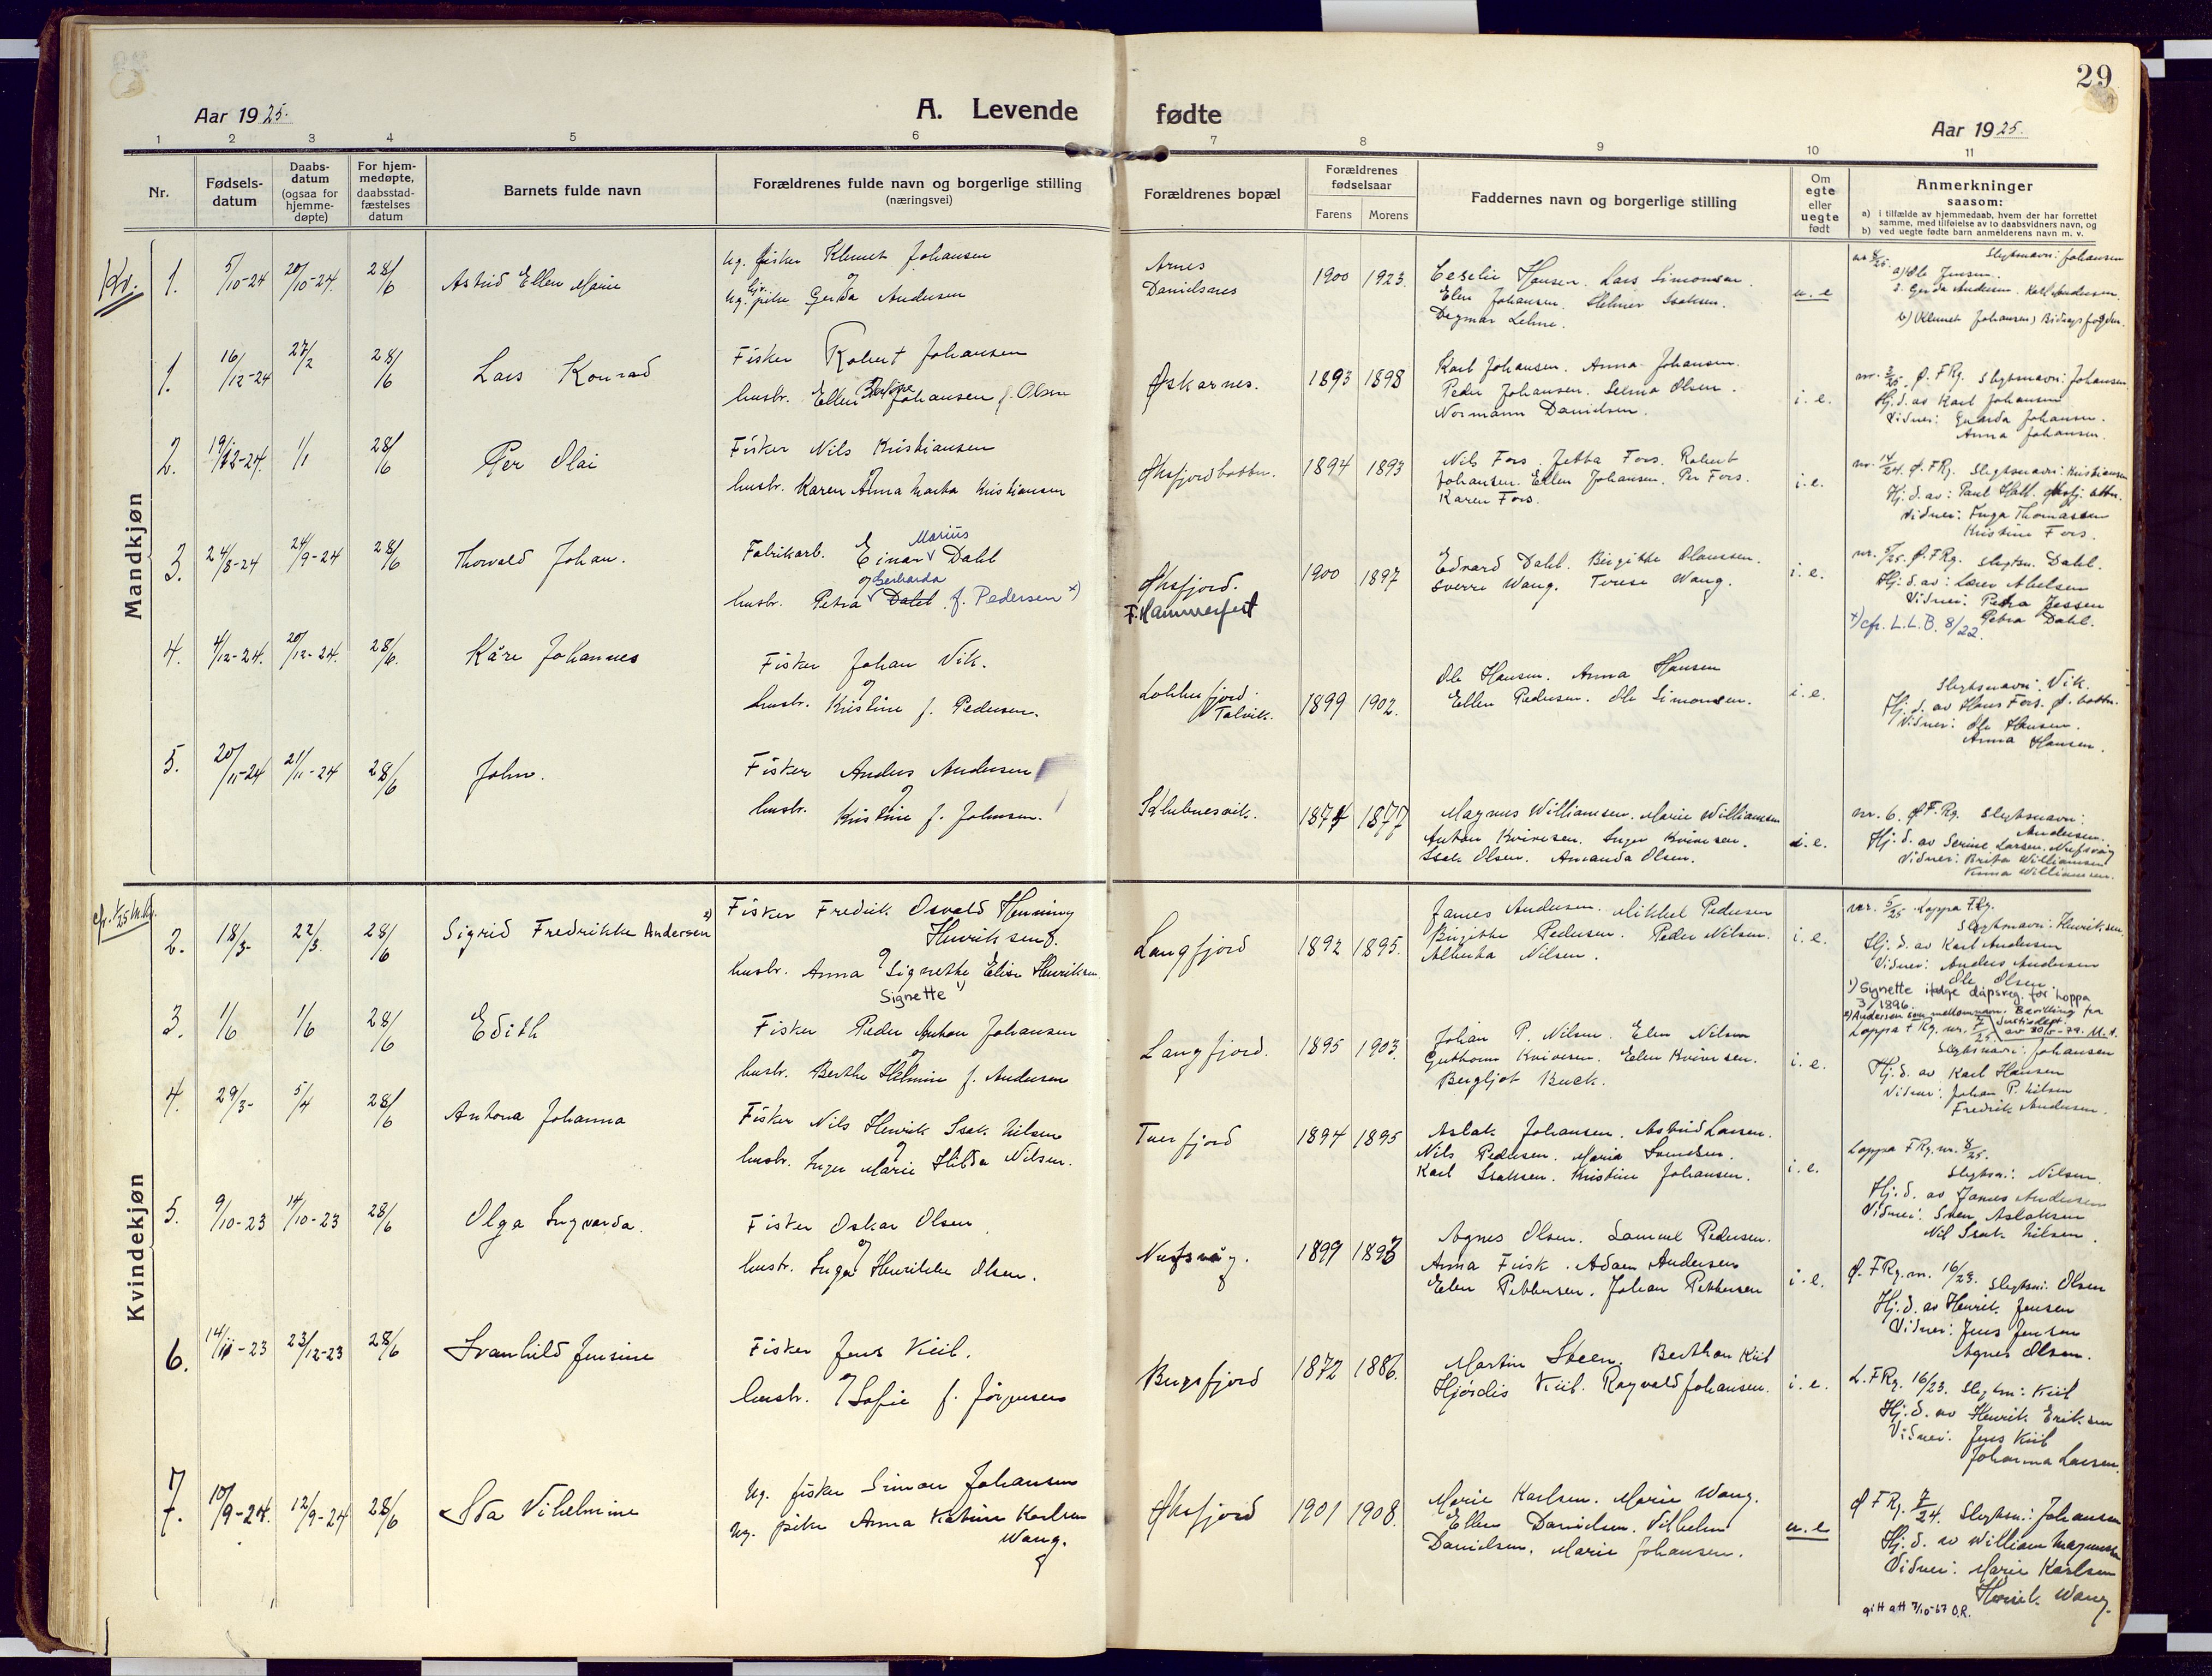 29
Aar 1925.
A. Levende fødte
Aar 1925.
1 2 3 4 5 6 7 8 9 10 11
Nr.
Fødsels-
datum
Daabs-
datum
(ogsaa for
hjemme-
døpte)
For hjem-
medøpte,
daabsstad-
fæstelses
datum
Barnets fulde navn
Forældrenes fulde navn og borgerlige stilling
(næringsvei)
Forældrenes bopæl
Forældrenes
fødselsaar
Farens Morens
Faddernes navn og borgerlige stilling
Om
egte
eller
uegte
født
Anmerkninger
saasom:
a) i tilfælde av hjemmedaab, hvem der har forrettet
samme, med tilføielse av to daabsvidners navn, og
b) ved uegte fødte barn anmelderens navn m. v.
Mandkjøn
Kv. 1. 5/10-24 20/10-24. 28/6 Astrid Ellen Marie
Ug. fisker Klemet Johansen
og
Ug. pike Gerda Andersen
Arnes
Danielsnes
1900 1923.
Hansen. Lars Simonsen.
Elen Johansen. Helmer Isaksen.
Dagmar Lehne.
u. e
Slegtsnavn: Johansen
a) Ole Jensen.
2. Gerda Andersen. Karl Andersen.
b) (Klemet Johansen) Bidragsfogden.
1. 16/12-24 27/2 28/6 Lars Konrad
Fisker Robert Johansen
hustr. Ellen Johansen f. Olsen
Øskarnes.
1893 1898
Karl Johansen. Anna Johansen.
Peder Johansen. Selma Olsen.
Normann Danielsen.
i. e.
nr. 2/25. Ø. FRg. Slegtsnavn: Johansen
Hj. d. av Karl Johansen
Vidner: Johansen.
Anna Johansen.
2. 19/12-24. 1/1 28/6 Per Olai
Fisker Nils Kristiansen
og
hustr. Karen Anna Marta Kristiansen
Øksfjordbotten.
1894 1893
Nils Fors. Jetta Fors. Robert
Johansen. Ellen Johansen. Per Fors.
Karen Fors.
i. e.
nr. 14/24. Ø. FRg. Slegtsnavn: Kristiansen
Hj. d. av: Paul Hall.
Vidner: Inga Thomassen
Kristine Fors.
3. 24/8-24 24/9-24 28/6 Thorvald Johan.
Fabrikarb. Einar Marius Dahl
og Gerharda
hustr. Petra Dahl f. Pedersen x)
Øksfjord.
F. Hammerfest
1900 1897
Edvard Dahl. Birgitte Olaussen.
Sverre Wang. Terese Wang.
i. e.
Ø. FRg. Slegtsn. Dahl.
Hj. d. av: Lærer Abelsen
Vidner: Petra Jessen
Petra Dahl.
x) cfr. L.L.B. 8/22.
4. 4/12-24. 20/12-24. 28/6. Kåre Johannes
Fisker Johan Vik.
og
hustr. Kristine f. Pedersen.
Talvik.
1899 1902.
Ole Hansen. Anna Hansen
Ellen Pedersen. Ole Simonsen.
i. e.
Slegtsnavn: Vik.
Hj. d. av Hans Fors. Ø. botten.
Vidner: Ole Hansen.
Anna Hansen.
5. 20/11-24 21/11-24 28/6 John.
Fisker Anders Andersen
og
hustr. Kristine f. Johnsen.
Klubnesvik.
1874 1877
Magnus Williamsen. Marie Williamsen
Anton Kvivesen. Inger Kvivesen.
Isak Olsen. Amanda Olsen.
i. e.
nr. 6. Ø F. Rg. Slegtsnavn:
Andersen.
Hj. d. av Serine Larsen. Nufsvåg
Vidner: Brita Williamsen
Anna Williamsen.
Kvindekjøn
cfr. 1/25 M.kj.
2. 18/3- 22/3. 28/6 Sigrid Fredrikke Andersen 2)
Fisker Fredrik Osvald Henning
Henriksen.
og
hustr. Anna Signethe Elise Henriksen
Signette 1)
Langfjord
1892 1895.
James Andersen. Mikkel Pedersen
Birgitte Pedersen. Peder Nilsen.
Alberta Nilsen.
i. e.
nr. 5/25 Loppa FRg.
Slegtsnavn: Henriksen.
Hj. d. av Karl Andersen
Vidner: Anders Andersen
Ole Olsen.
1) Signette ifølge dåpsreg. for Loppa
3/1896.
2) Andersen som mellomnavn. Bevilling fra
Justisdept.
3. 1/6 1/6 28/6 Edith
Fisker Peder Anton Johansen
og
hustr. Berthe Helmine f. Andersen
Langfjord.
1895 1903.
Johan P. Nilsen. Elen Nilsen
Guthorm Kvivesen. Elen Kvivesen.
Bergljot Buck.
i. e.
Loppa F Rg. nr. 7/25.
Slegtsnavn: Johansen
Hj. d. av Karl Hansen
Vidner: Johan P. Nilsen
Fredrik Andersen.
4. 29/3- 5/4 28/6 Antona Johanna
Fisker Nils Henrik Isak Nilsen
og
hustr. Inger Marie Hilda Nilsen.
Tverfjord
1894 1895
Aslak Johansen. Astrid Larsen.
Nils Pedersen. Maria Svendsen.
Karl Isaksen. Kristine Johansen.
i. e.
Loppa FRg. nr. 8/25.
Slegtsn.: Nilsen.
Hj. d. av James Andersen
Vidner: Sven Aslaksen
Nil Isak Nilsen.
5. 9/10-23 14/10-23 28/6 Olga Ingvarda.
Fisker Oskar Olsen
og
hustr. Inga Henrikke Olsen.
Nufsvåg.
1899 1893
Agnes Olsen. Samuel Pedersen.
Anna Fiisk. Adam Andersen
Elen Pettersen. Johan Pettersen
i. e.
Ø. FRg. nr. 16/23. Slegtsn: Olsen
Hj. d. av Henrik Jensen
Vidner: Jens Jensen
Agnes Olsen.
6. 14/11-23 23/12-23 28/6 Svanhild Jensine
Fisker Jens Kiil.
hustr. og Sofie f. Jørgensen
Bergsfjord
1872 1886.
Martin Steen. Berthan Kiil
Hjørdis Kiil. Ragvald Johansen.
i. e.
L. FRg. 16/23. Slegtsn: Kiil
Hj. d. av Henrik Eriksen
Vidner: Jens Kiil
Johanna Larsen.
7. 10/9-24. 12/9-24 28/6 Ida Vilhelmine
Ug. fisker Simon Johansen
Ug. pike Anna Katrine Karlsen
Wang.
Øksfjord
1901 1908.
Marie Karlsen. Marie Wang.
Ellen Danielsen. Vilhelm
Danielsen. Marie Johansen.
u. e
Ø FRg. 7/24. Slegtsn: Johansen
Hj. d. av William Magnussen
Vidner: Marie Karlsen
Henrik Wang.
gitt att 7/10-67 O.R.